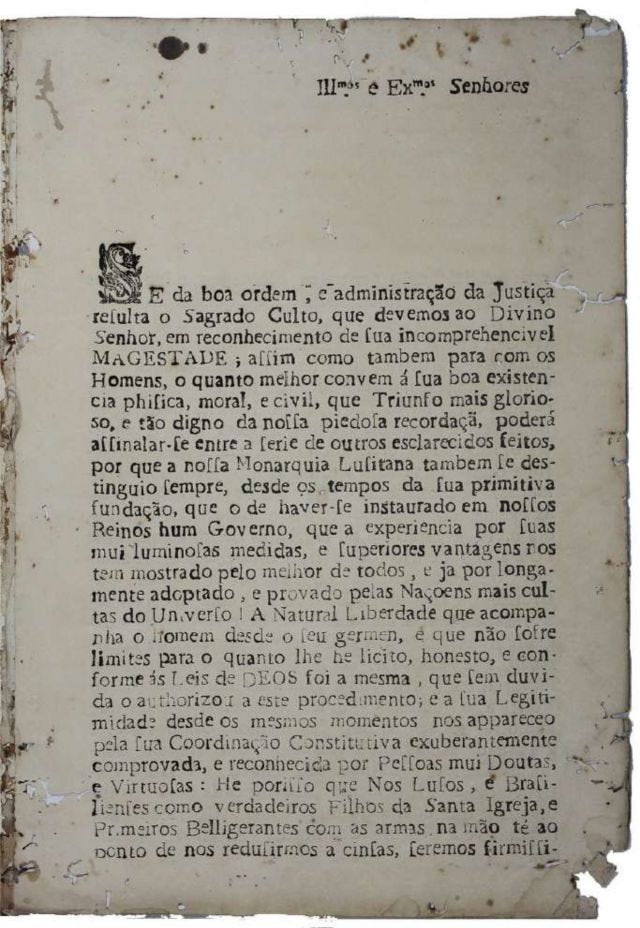 Illᵐᵒˢ e Exᵐᵒˢ Senhores
SE da boa ordem, e administração da Justiça
reſulta o Sagrado Culto, que devemos ao Divino
Senhor, em reconhecimento de ſua incomprehencivel
MAGESTADE; aſſim como tambem para com os
Homens, o quanto melhor convem á ſua boa existen-
cia phiſica, moral, e civil, que Triunfo mais glorio-
so, e tão digno da noſſa piedoſa recordaçã, poderá
aſſinalar-ſe entre a ſerie de outros esclarecidos feitos,
por que a noſſa Monarquia Luſitana tambem ſe des-
tinguio ſempre, desde os tempos da ſua primitiva
fundação, que o de haver-ſe instaurado em noſſos
Reinos hum Governo, que a experiencia por ſuas
mui luminoſas medidas, e ſuperiores vantagens nos
tem mostrado pelo melhor de todos, e ja por longa-
mente adoptado, e provado pelas Naçoens mais cul-
tas do Univerſo! A Natural Liberdade que acompa-
nha o Homem desde o ſeu germen, e que não ſofre
limites para o quanto lhe he licito, honesto, e con-
forme ás Leis de DEOS foi a mesma, que ſem duvi-
da o authorizou a este procedimento; e a ſua Legiti-
midade desde os mesmos momentos nos appareceo
pela ſua Coordinação Constitutiva exuberantemente
comprovada, e reconhecida por Peſſoas mui Doutas,
e Virtuoſas: He poriſſo que Nos Luſos, e Braſi-
lienſes como verdadeiros Filhos da Santa Igreja, e
Primeiros Belligerantes com as armas na mão té ao
ponto de nos reduſirmos a cinſas, ſeremos firmiſſi-